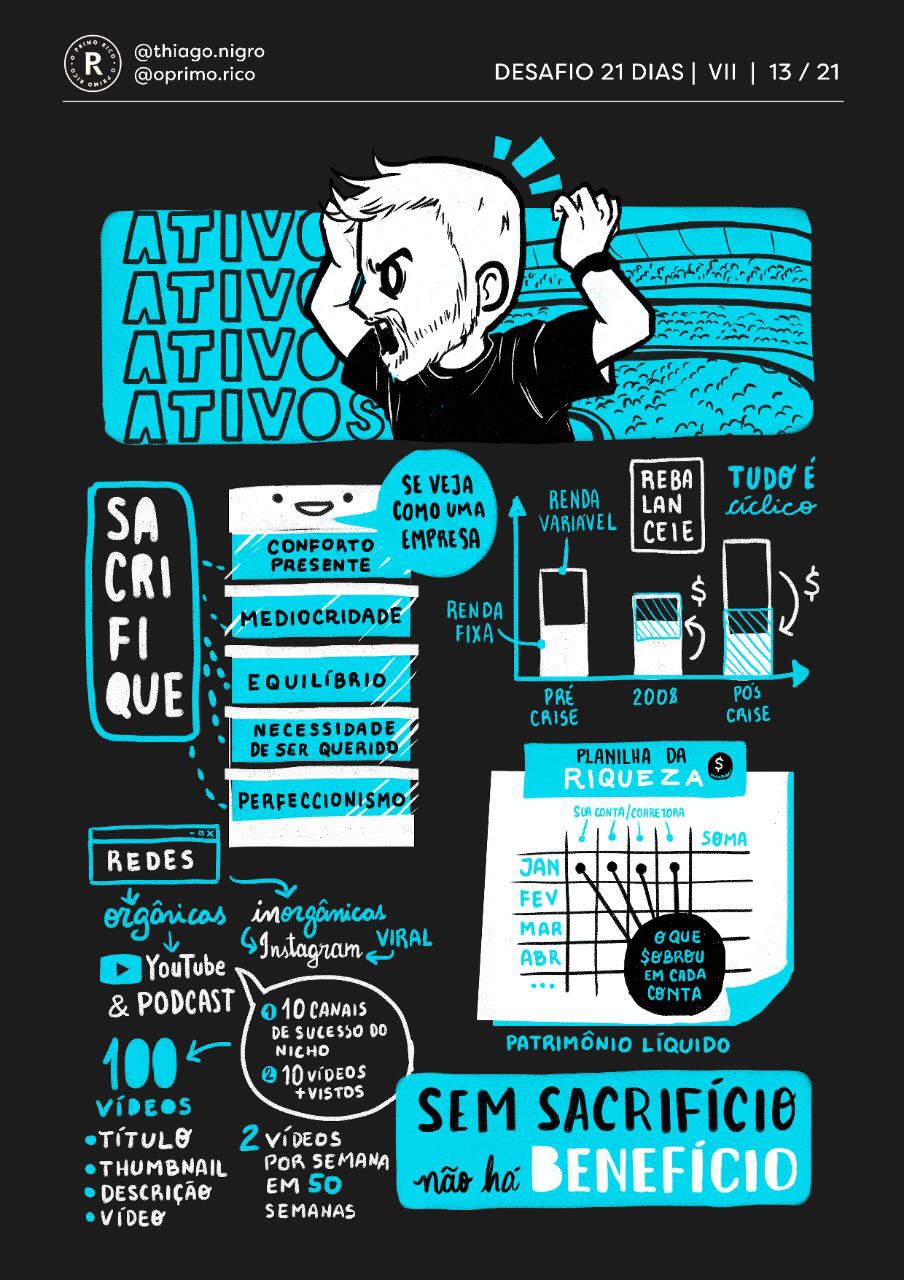 O PRIMO RICO • O PRIMO RICO •
R
@thiago.nigro
@oprimo.rico
DESAFIO 21 DIAS | VII | 13 / 21
ATIVO
ATIVO
ATIVO
ATIVOS
SA
CRI
FI
QUE
SE VEJA
COMO UMA
EMPRESA
CONFORTO
PRESENTE
MEDIOCRIDADE
EQUILÍBRIO
NECESSIDADE
DE SER QUERIDO
PERFECCIONISMO
RENDA
VARIÁVEL
REBA
LAN
CEIE
TUDO É
cíclico
RENDA
FIXA
$
$
PRÉ
CRISE
2008
PÓS
CRISE
PLANILHA DA
RIQUEZA
$
SUA CONTA/CORRETORA
SOMA
JAN
FEV
MAR
ABR
...
O QUE
$OBROU
EM CADA
CONTA
PATRIMÔNIO LÍQUIDO
REDES
orgânicas
inorgânicas
Instagram
VIRAL
YouTube
& PODCAST
1 10 CANAIS
DE SUCESSO DO
NICHO
2 10 VÍDEOS
+VISTOS
100
VÍDEOS
•TÍTULO
•THUMBNAIL
•DESCRIÇÃO
•VÍDEO
2 VÍDEOS
POR SEMANA
EM 50
SEMANAS
SEM SACRIFÍCIO
não há BENEFÍCIO